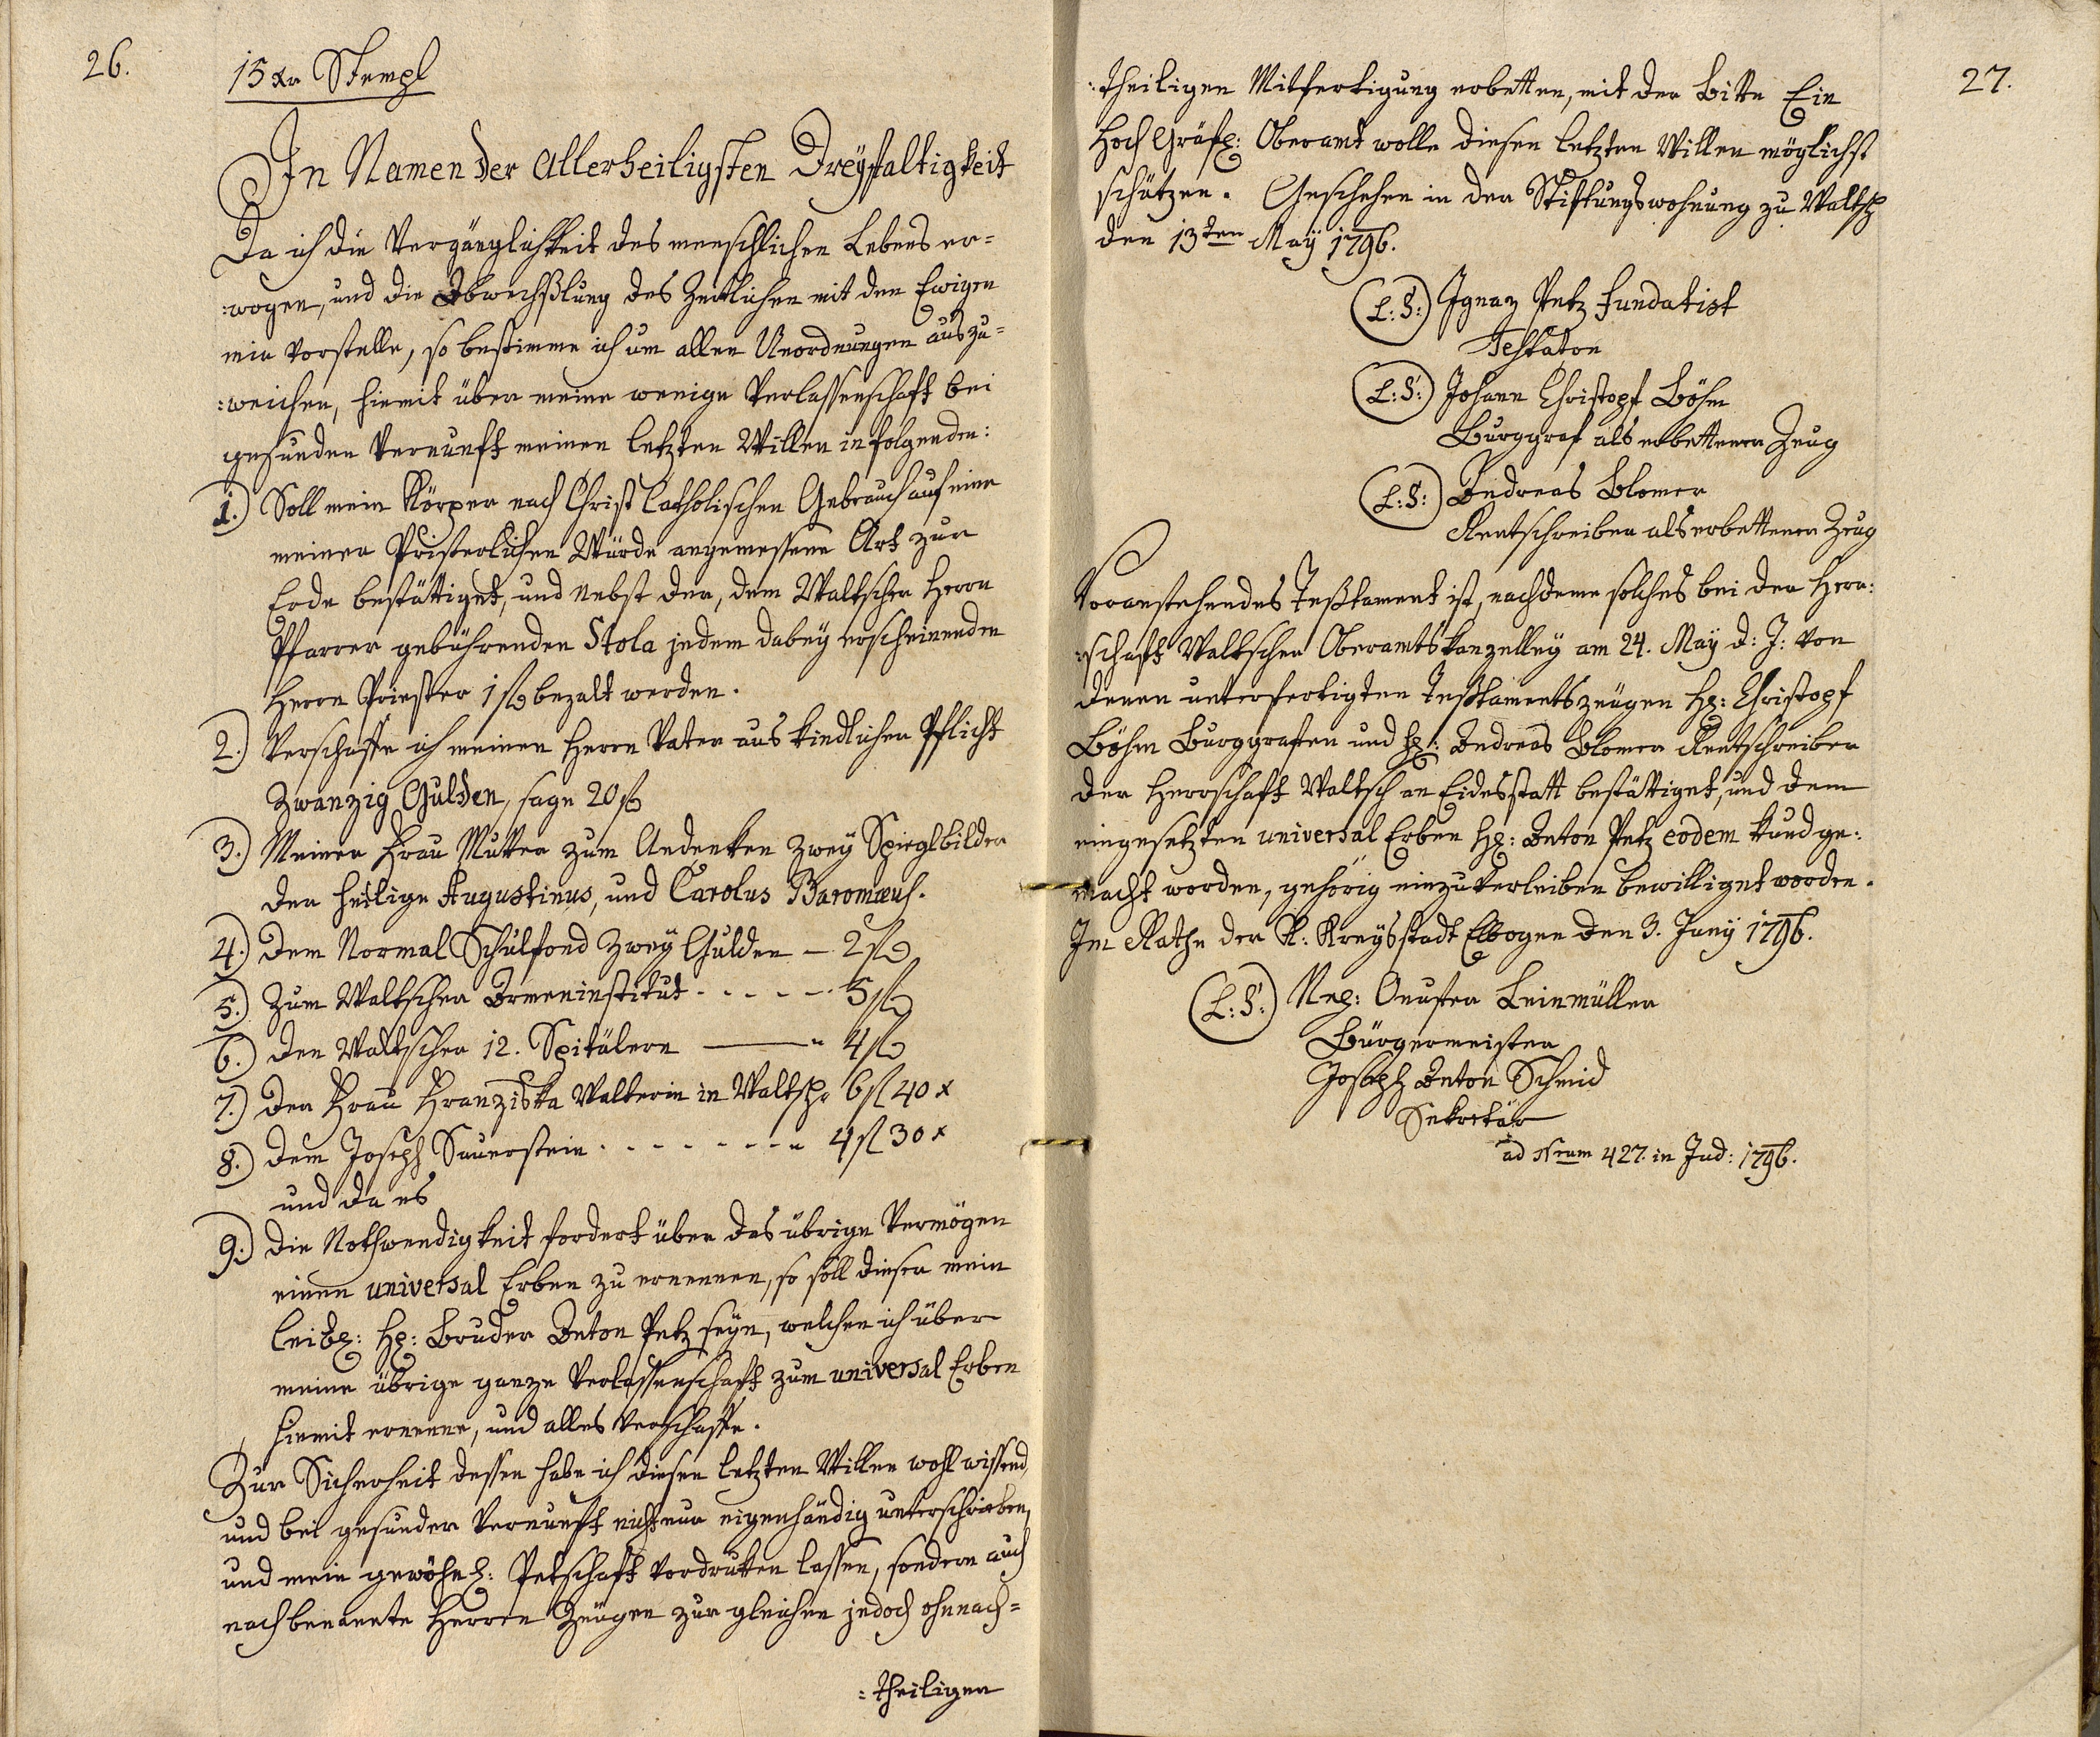 26.
15 Xr Stempl
In Namen der Allerheiligsten Dreyfaltigkeit
Da ich die Vergänglichkeit des menschlichen Lebens er=
:wogen, und die Abwechßlung des Zeitlichen mit den Ewigen
mir vorstelle, so bestimme ich um allen Unordnungen auszu=
:weichen, hiemit über meine wenige Verlassenschaft bei
gesunder Vernunft meinen letzten Willen in folgenden:
1.) Soll mein Körper nach Christ Catholischen Gebrauch auf eine
meiner Pristerlichen Würde angemessene Art zur
Erde bestättiget, und nebst der, dem Waltscher Herrn
Pfarrer gebührenden Stola jedem dabey erscheinenden
Herrn Priester 1 fl bezalt werden.
2.) Verschaffe ich meinen Herrn Vater aus kindlicher Pflicht
Zwanzig Gulden, sage 20 fl
3.) Meiner Frau Mutter zum Andenken zwey Spieglbilder
der heilige Augustinus, und Carolus Baromæus.
4.) Dem Normal Schulfond zwey Gulden — 2 fl
5.) Zum Waltscher Armeninstitut - - - - - 5 fl
6.) Den Waltscher 12. Spitälern ——— " 4 fl
7.) Der Frau Franziska Walterin in Waltsch 6 fl 40 x
8.) Dem Joseph Sauerstein - - - - - - - " 4 fl 30 x
und da es
9.) Die Nothwendigkeit fordert über das übrige Vermögen
einen universal Erben zu ernennen, so soll dieser mein
leibl: H: Bruder Anton Petz seyn, welchen ich über
meine übrige ganze Verlassenschaft zum universal Erben
hiemit ernenne, und alles verschaffe.
Zur Sicherheit dessen habe ich diesen letzten Willen wohl wissend,
und bei gesunder Vernunft nicht nur eigenhändig unterschrieben,
und mein gewöhnl: Petschaft vordruken lassen, sondern auch
nachbenannte Herren Zeugen zur gleichen jedoch ohnnach=
:theiligen
27.
:theiligen Mitfertigung erbetten, mit der Bitte Ein
Hoch Gräfl: Oberamt wolle diesen letzten Willen möglichst
schützen. Geschehen in der Stiftungswohnung zu Waltsch
den 13ten May 1796.
(L: S:) Ignaz Petz Fundatist
Testator
(L: S:) Johann Christoph Böhm
Burggraf als erbettener Zeug
(L: S:) Andreas Blomer
Rentschreiber als erbettener Zeug
Voranstehendes Testtament ist, nachdeme solches bei der Herr:
:schaft Waltscher Oberamtskanzelley am 24. May d: J: von
denen unterfertigten Testtamentszeugen H: Christoph
Böhm Burggrafen und H: Andreas Blomer Rentschreiber
der Herrschaft Waltsch an Eidesstatt bestättiget, und dem
eingesetzten universal Erben H: Anton Petz eodem kund ge:
macht worden, gehörig einzuverleiben bewilliget worden.
Im Rathe der K: Kreysstadt Elbogen den 3. Juny 1796.
(L: S:) Leinmüller
Bürgermeister
Joseph Anton Schmid
Sekretär
ad Nrum 427. in Jud: 1796.